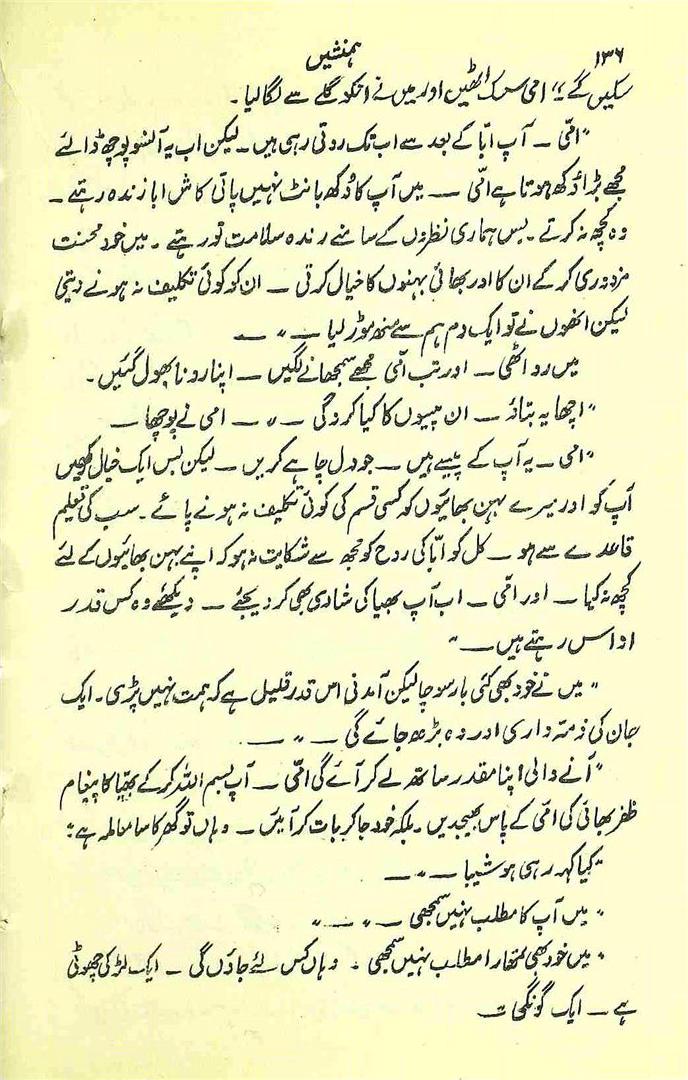 ۱۳۶
ہمنشیں
سکیں گے؟" امی سسک اٹھیں اور میں نے انکو گلے سے لگا لیا۔
"امّی ــ آپ ابّا کے بعد سے اب تک روتی رہی ہیں۔ لیکن اب یہ آنسو پوچھ ڈالئے
مجھے بڑا دُکھ ہوتا ہے امّی ــ میں آپ کا دُکھ بانٹ نہیں پاتی کاش ابا زندہ رہتے۔
وہ کچھ نہ کرتے۔ بس ہماری نظروں کے سامنے زندہ سلامت تو رہتے۔ میں خود محنت
مزدوری کر کے ان کا اور بھائی بہنوں کا خیال کرتی ــ ان کو کوئی تکلیف نہ ہونے دیتی
لیکن انھوں نے تو ایک دم ہم سے منھ موڑ لیا ــ" ــ
میں رو اٹھی ــ اور تب امّی مجھے سمجھانے لگیں ــ اپنا رونا بھول گئیں۔
"اچھا یہ بتاؤ ــ ان پیسوں کا کیا کرو گی ــ" ــ امی نے پوچھا ــ
"امی ــ یہ آپ کے پیسے ہیں ــ جو دل چاہے کریں ــ لیکن بس ایک خیال رکھیں
آپ کو اور میرے بہن بھائیوں کو کسی قسم کی کوئی تکلیف نہ ہونے پائے۔ سب کی تعلیم
قاعدے سے ہو ــ کل کو ابّا کی روح کو مجھ سے شکایت نہ ہو کہ اپنے بہن بھائیوں کے لئے
کچھ نہ کیا ــ اور امّی ــ اب آپ بھیا کی شادی بھی کر دیجئے ــ دیکھئے وہ کس قدر
اداس رہتے ہیں ــ"
"میں نے خود بھی کئی بار سوچا لیکن آمدنی اس قدر قلیل ہے کہ ہمت نہیں پڑی۔ ایک
جان کی ذمہ داری اور بڑھ جائے گی ــ" ــ
"آنے والی اپنا مقدر ساتھ لے کر آئے گی امّی ــ آپ بسم اللہ کر کے بھیّا کا پیغام
ظفر بھائی کی امّی کے پاس بھیجدیں۔ بلکہ خود جا کر بات کر آئیں ــ وہاں تو گھر کا سا معاملہ ہے"
"کیا کہہ رہی ہو شیبا ــ" ــ
"میں آپ کا مطلب نہیں سمجھی ــ" ــ "
"میں خود بھی تمھارا مطلب نہیں سمجھی۔ وہاں کس لئے جاؤں گی ــ ایک لڑکی چھوٹی
ہے ــ ایک گونگی ــ